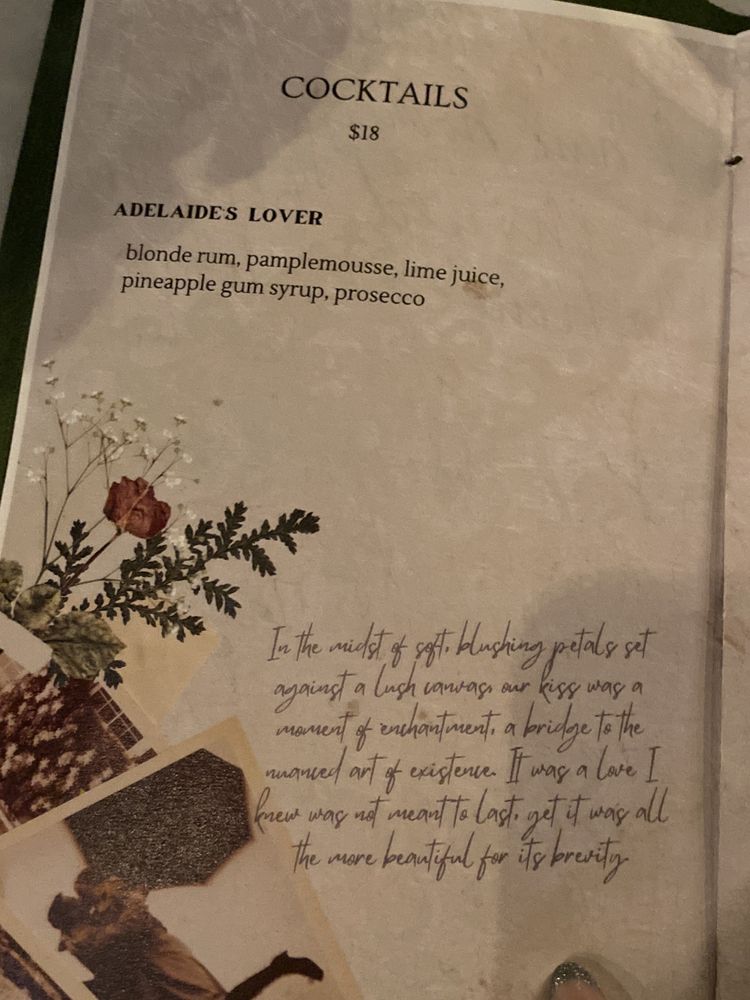 COCKTAILS
$18
ADELAIDE'S LOVER
blonde rum, pamplemousse, lime juice,
pineapple gum syrup, prosecco
In the midst of soft, blushing petals set
against a lush canvas, our kiss was a
moment of enchantment, a bridge to the
nuanced art of existence. It was a love I
knew was not meant to last, yet it was all
the more beautiful for its brevity.